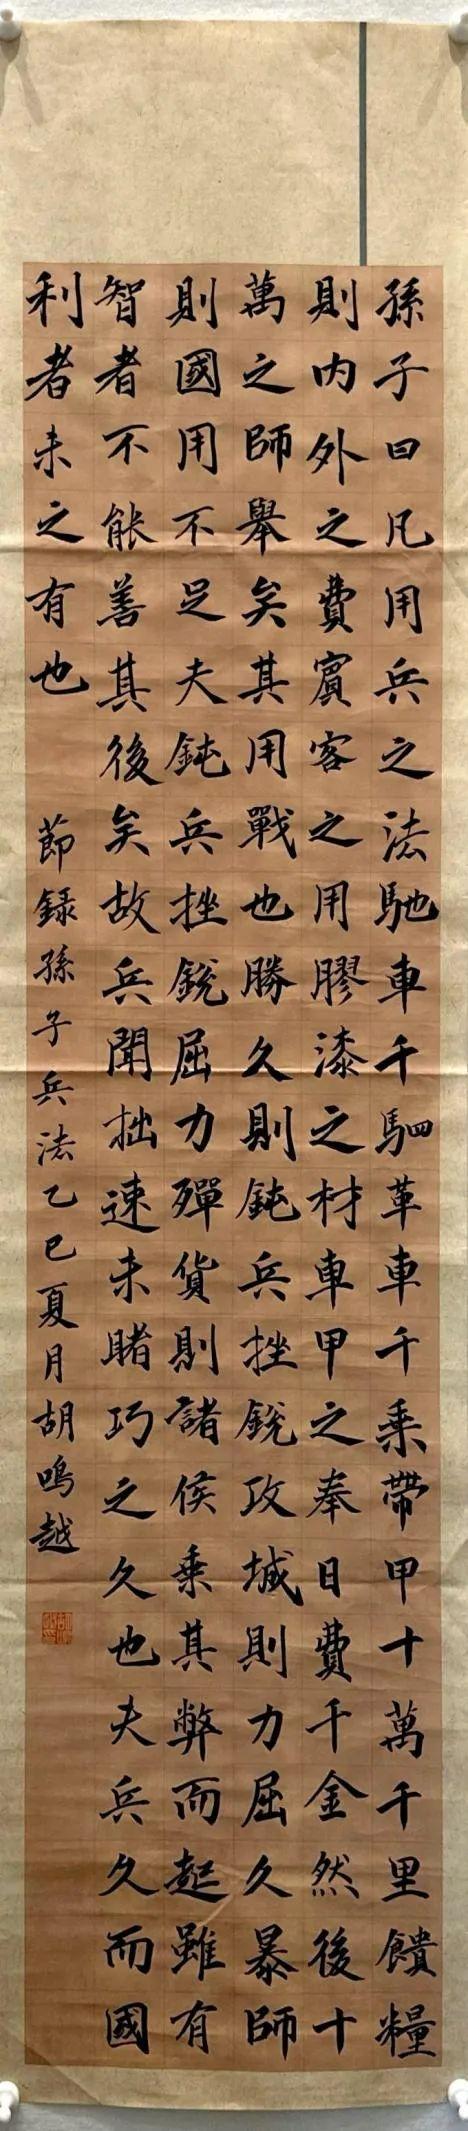 孫子曰凡用兵之法馳車千駟革車千乘帶甲十萬千里饋糧
則内外之費賓客之用膠漆之材車甲之奉日費千金然後十
萬之師舉矣其用戰也勝久則鈍兵挫銳攻城則力屈久暴師
則國用不足夫鈍兵挫銳屈力殫貨則諸侯乘其弊而起雖有
智者不能善其後矣故兵聞拙速未睹巧之久也夫兵久而國
利者未之有也
節録孫子兵法乙巳夏月胡鳴越